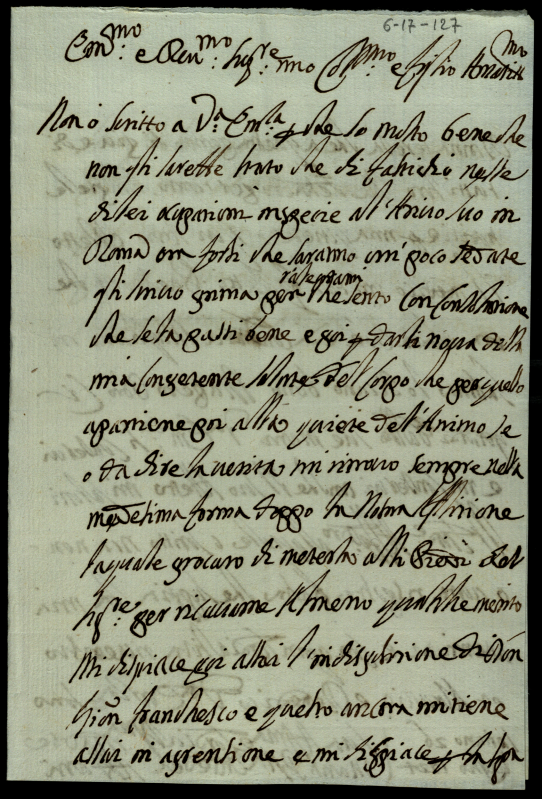 6-17-127
Em.mo e Rev.mo Sig.re mio Col.mo e Figlio Amatiss.mo
Non ò scritto a V.a Em.za p che so molto bene che
non gli sarette stato che di fastidio nelle
di lei ocupationi in specie al'Arivo suo in
Roma ora forsi che saranno un' poco sedate
gli scrivo prima per ralegrarmi che sento con consolatione
che se la passi bene e poi p darli nova della
mia competente salute del Corpo che per quello
apartiene poi alla quiete del'Animo se
o da dire la verità mi ritrovo sempre nella
medesima forma doppo la Nostra Afflitione
la quale procuro di meterla alli Piedi del
Sig.re per ricavarne Almeno qualche merito
Mi dispiace poi assai l'indispositione di Don
Gion Franchesco e questo ancora mi tiene
assai in aprentione e mi dispiace p la